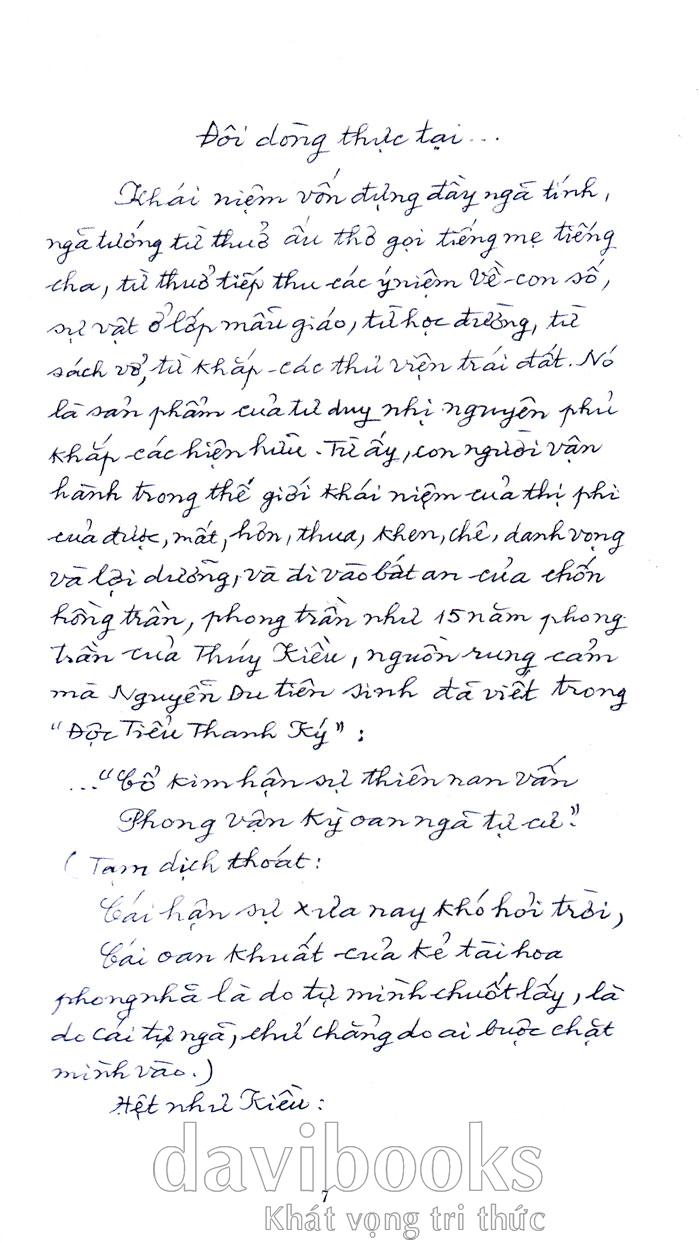 Đôi dòng thực tại...
Khái niệm vốn đựng đầy ngã tính,
ngã tướng từ thuở ấu thơ gọi tiếng mẹ tiếng
cha, từ thuở tiếp thu các ý niệm về con số,
sự vật ở lớp mẫu giáo, từ học đường, từ
sách vở, từ khắp các thư viện trái đất. Nó
là sản phẩm của tư duy nhị nguyên phủ
khắp các hiện hữu. Từ ấy, con người vận
hành trong thế giới khái niệm của thị phi
của được, mất, hơn, thua, khen, chê, danh vọng
và lợi dưỡng, và đi vào bất an của chốn
hồng trần, phong trần như 15 năm phong
trần của Thúy Kiều, nguồn rung cảm
mà Nguyễn Du tiên sinh đã viết trong
"Độc Tiểu Thanh Ký" :
..."Cổ kim hận sự thiên nan vấn
Phong vận kỳ oan ngã tự cư."
(Tạm dịch thoát:
Cái hận sự xưa nay khó hỏi trời,
Cái oan khuất của kẻ tài hoa
phong nhã là do tự mình chuốt lấy, là
do cái tự ngã, chứ chẳng do ai buộc chặt
mình vào.)
Hệt như Kiều :
davibooks
7
Khát vọng tri thức